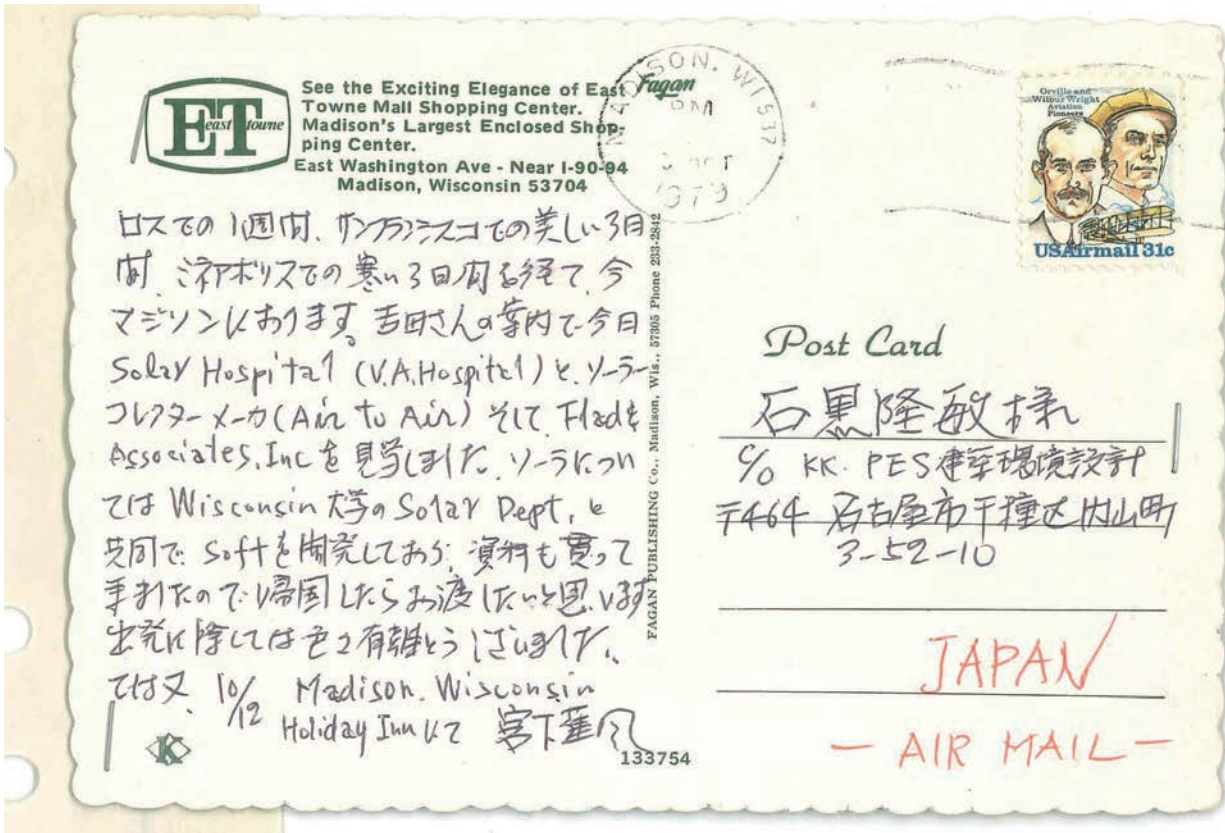 ET
east towne
See the Exciting Elegance of East
Towne Mall Shopping Center.
Madison's Largest Enclosed Shop-
ping Center.
East Washington Ave - Near I-90-94
Madison, Wisconsin 53704
Fagan
MADISON, WI 537
PM
1979
Orville and
Wilbur Wright
Aviation
Pioneers
USAirmail 31c
ロスでの1週間、サンフランシスコでの美しい3日
間、ミネアポリスでの寒い3日間を経て、今
マジソンにおります。吉田さんの案内で今日
Solar Hospital (V.A.Hospital)と、ソーラー
コレクターメーカ(Air to Air)そして、Flad &
Associates, Inc を見学しました。ソーラについ
ては Wisconsin 大学の Solar Dept, と
共同で、Softを開発しており、資料も貰って
きましたので帰国したらお渡したいと思います
出発に際しては色々有難とうございました。
では又、10/12 Madison. Wisconsin
Holiday Innにて 宮下
133754
FAGAN PUBLISHING Co., Madison, Wis., 57305 Phone 233-2842
Post Card
石黒隆敏様
c/o KK. PES建築環境設計
〒464 名古屋市千種区内山町
3-52-10
JAPAN
- AIR MAIL -
K